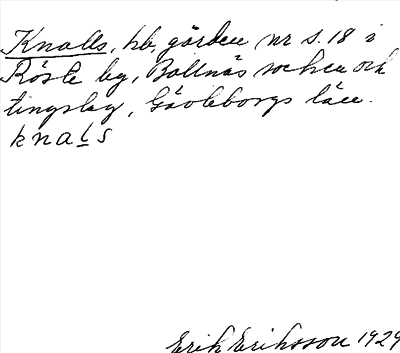 Knalls, hb, gården nr s. 18 i
Röste by, Bollnäs socken och
tingslag, Gävleborgs län.
knaḷs
Erik Eriksson 1929